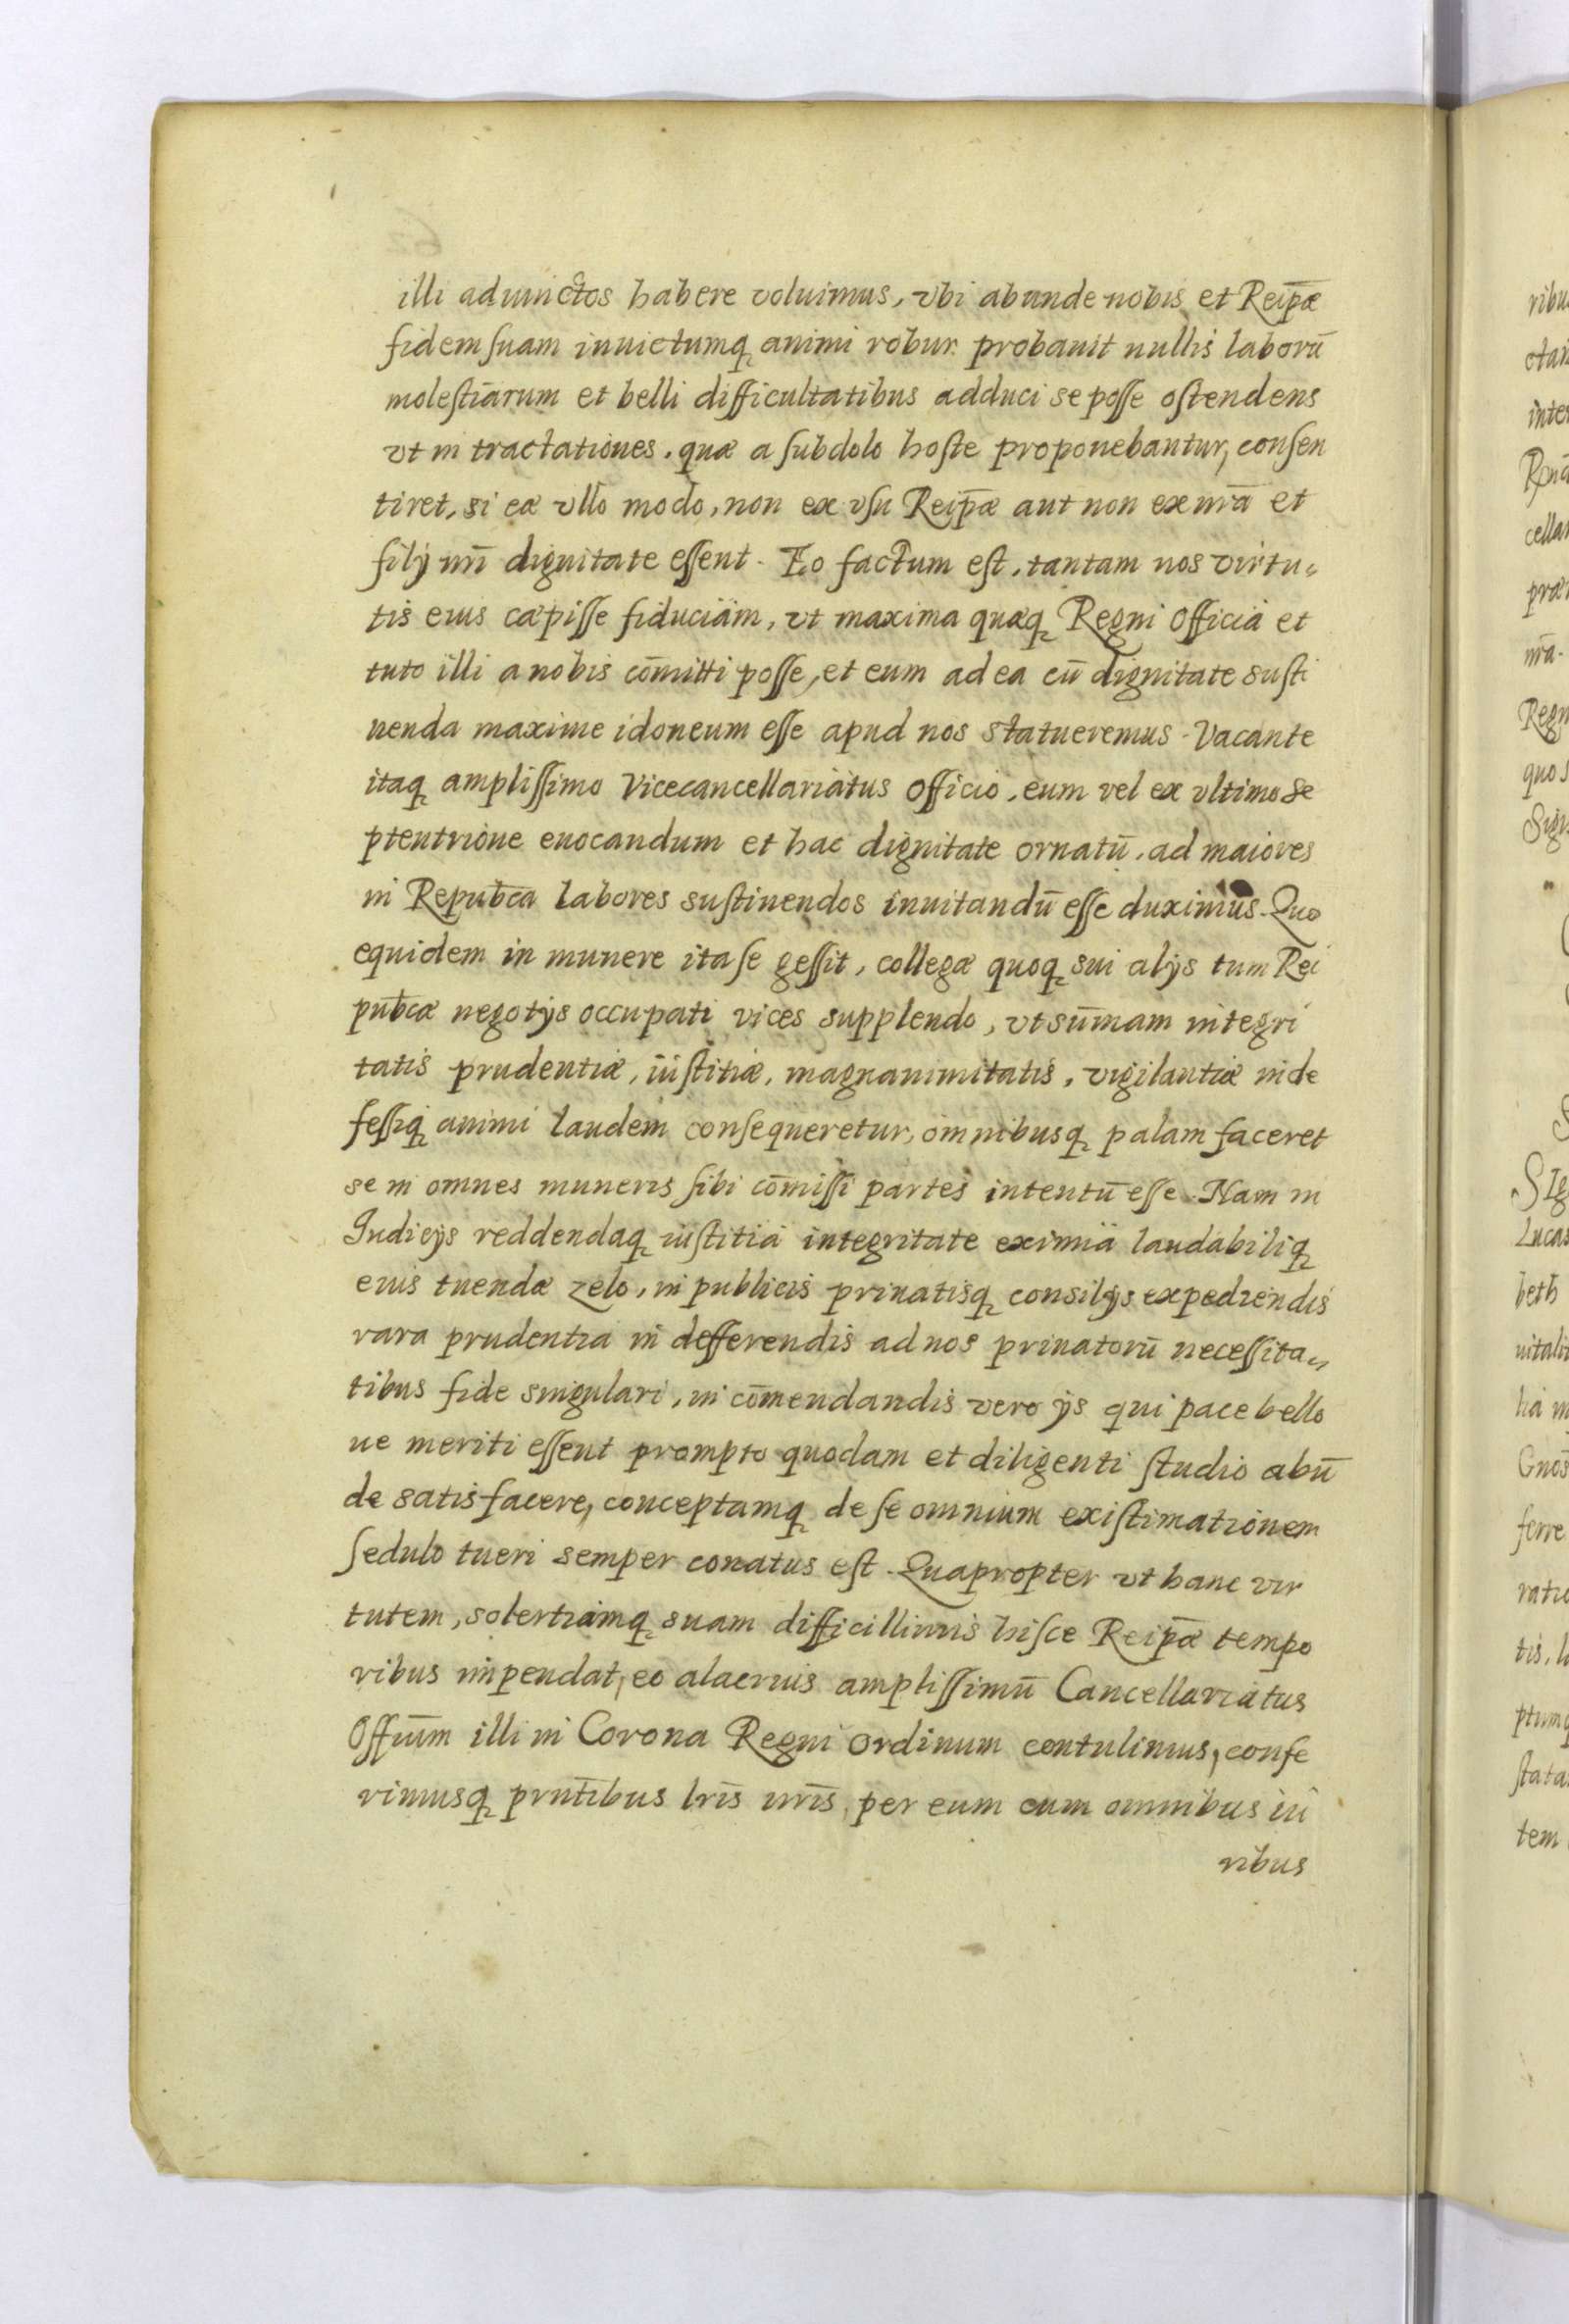 illi aduinctos habere voluimus, vbi abunde nobis et Reip̄æ
fidem suam inuictumq̨ animi robur probauit nullis laborū
molestiarum et belli difficultatibus adduci se posse ostendens
vt in tractationes, quæ a subdolo hoste proponebantur, consen
tiret, si eæ vllo modo, non ex vsu Reip̄æ aut non ex nr̄a et
filÿ nr̄i dignitate essent. Eo factum est, tantam nos virtu„
tis eius cæpisse fiduciam, vt maxima quæq̨ Regni officia et
tuto illi a nobis com̄itti posse, et eum ad ea cū dignitate susti
nenda maxime idoneum esse apud nos statueremus. Vacante
itaq̨ amplissimo Vicecancellariatus officio, eum vel ex vltimo Se
ptentrione euocandum et hac dignitate ornatū, ad maiores
in Repub̄ca labores sustinendos inuitandū esse duximus. Quo
equidem in munere ita se gessit, collegæ quoq̨ sui alÿs tum Rei
pub̄cæ negotÿs occupati vices supplendo, vt sūmam integri
tatis prudentiæ, iustitiæ, magnanimitatis, vigilantiæ inde
fessiq̨ animi laudem consequeretur, omnibusq̨ palam faceret
se in omnes muneris sibi cōmissi partes intentū esse. Nam in
Judicÿs reddendaq̨ iustitia integritate eximia laudabiliq̨
eius tuendæ zelo, in publicis priuatisq̨ consilÿs expediendis
rara prudentia in defferendis ad nos priuatorū necessita„
tibus fide singulari, in cōmendandis vero ÿs qui pace bello
ue meriti essent prompto quodam et diligenti studio abū
de satisfacere, conceptamq̨ de se omnium existimationem
sedulo tueri semper conatus est. Quapropter vt hanc vir
tutem, solertiamq̨ suam difficillimis hisce Reip̄æ tempo
ribus impendat, eo alacrius amplissimū Cancellariatus
Offiūm illi in Corona Regni ordinum contulimus, confe
rimusq̨ prn̄tibus lr̄is nr̄is, per eum cum omnibus iu
ribus